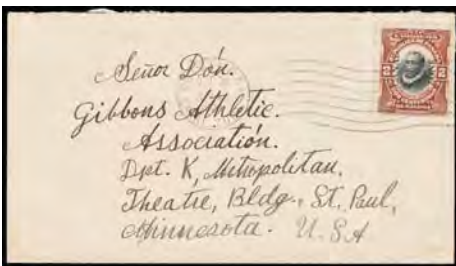 Señor Dón.
Gibbons Athletic.
Association.
Dpt. K, Metropolitan,
Theatre, Bldg., St. Paul,
Minnesota. U.S.A
2 2